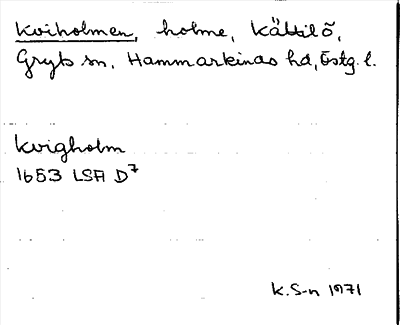 Kviholmen, holme, Kättilö,
Gryts sn, Hammarkinds hd, Östg. l.
Kvigholm
1653 LSA D7
K. S-n 1971